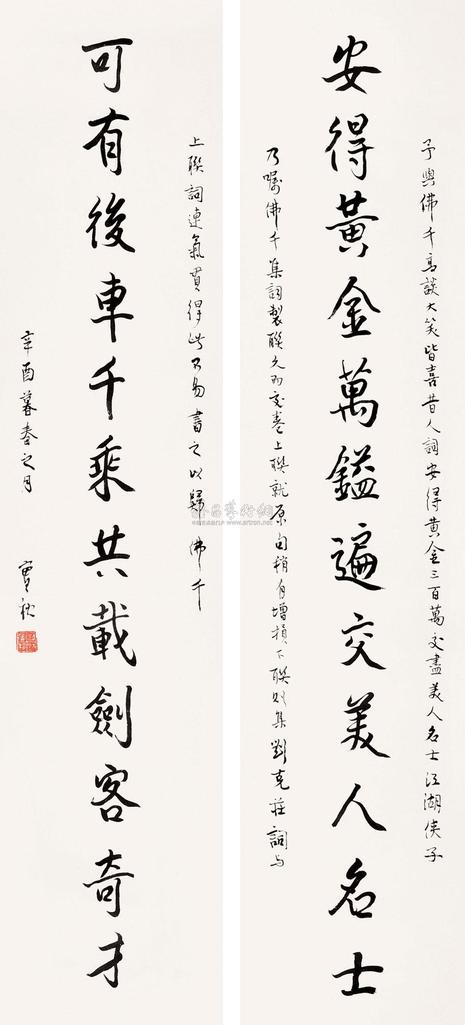 予與佛千高談大笑皆喜昔人詞安得黃金三百萬交盡美人名士江湖俠子
安得黃金萬鎰遍交美人名士
乃囑佛千集詞製聯久而交卷上聯就原句稍自增損下聯則集劉克莊詞與
上聯詞連氣貫得此不易書之以歸佛千
可有後車千乘共載劍客奇才
辛酉暮春之月
賓秋